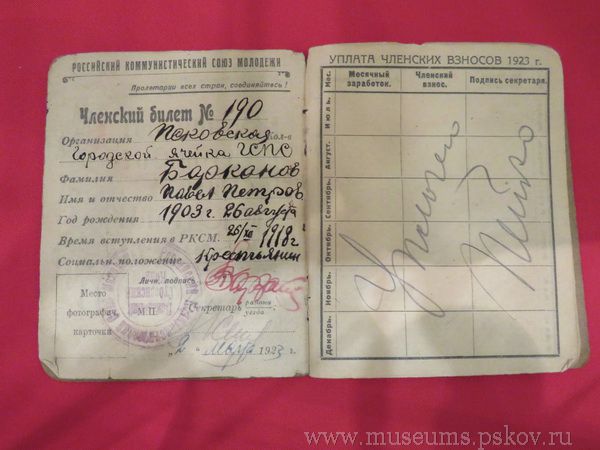 РОССИЙСКИЙ КОММУНИСТИЧЕСКИЙ СОЮЗ МОЛОДЕЖИ
Пролетарии всех стран, соединяйтесь!
Членский билет № 190
Организация Псковская кол-в
Городской ячейка ГСПС
Фамилия Барканов
Имя и отчество Павел Петров
Год рождения 1903 г. 26 августа
Время вступления в РКСМ. 26/III 1918 г
Социальн. положение Крестьянин
Личн. подпись
Место
фотографич.
карточки
М.П.
Секретарь района
уезда
"2" Мая 1923 г.
УПЛАТА ЧЛЕНСКИХ ВЗНОСОВ 1923 г.
Мес. Месячный заработок. Членский взнос. Подпись секретаря.
Июль.
Август.
Сентябрь.
Октябрь.
Ноябрь.
Декабрь.
Уплочено
www.museums.pskov.ru